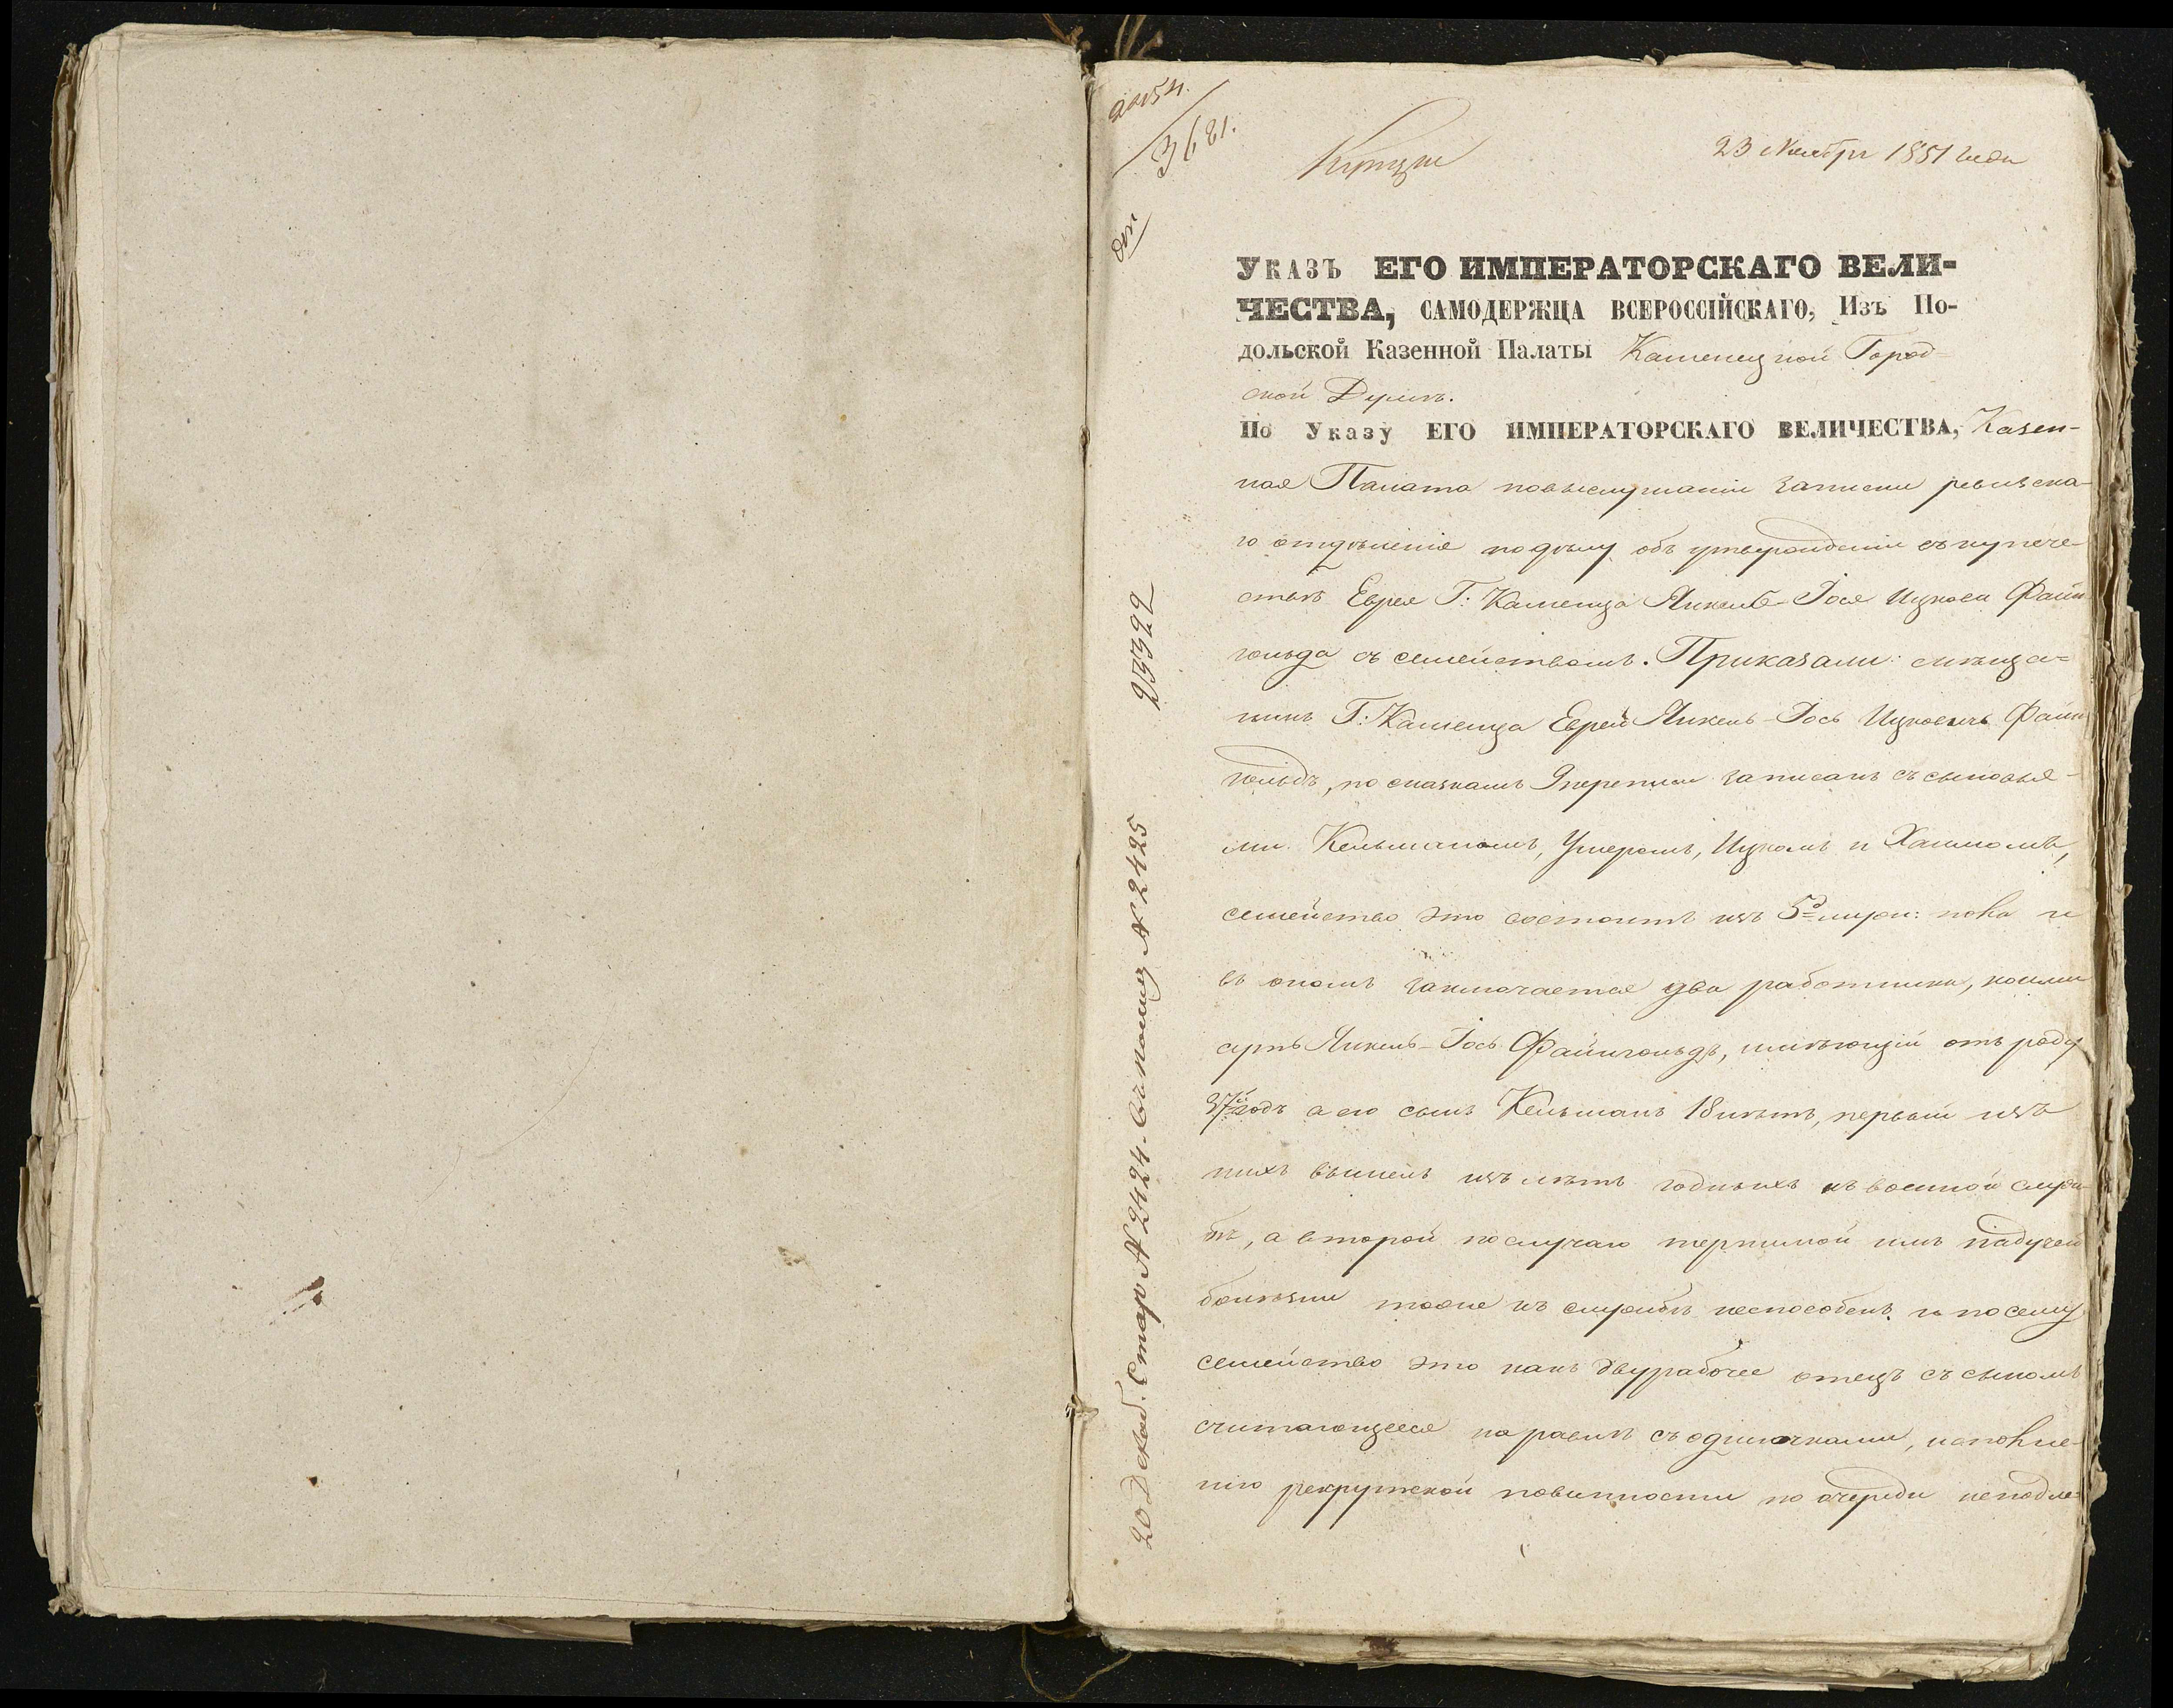 3681.
23 Ноября 1851 года
Указъ ЕГО ИМПЕРАТОРСКАГО ВЕЛИ-
ЧЕСТВА, САМОДЕРЖЦА ВСЕРОССІЙСКАГО, Изъ По-
дольской Казенной Палаты Каменецкой Город-
ской Думѣ.
По Указу ЕГО ИМПЕРАТОРСКАГО ВЕЛИЧЕСТВА, Казен-
ная Палата повыслушаніи записки ревизска-
го отдѣленія подѣлу объ утвержденіи въ купече-
ствѣ Еврея Г: Каменца Янкеля-Іося Ицкова Файн
гольда съ семействомъ. Приказали: мѣща-
нинъ Г: Каменца Еврей Янкель-Іось Ицковичъ Файн
гольдъ, по сказкамъ 9 переписи записанъ съ сыновья-
ми Кельманомъ, Умеромъ, Ицкомъ и Хаимомъ,
семейство это состоитъ изъ 5 мужс: пола и
въ ономъ заключается два работника, коими
суть Янкель-Іось Файнгольдъ, имѣющій отъ роду
37 годъ а его сынъ Кельманъ 18 лѣтъ, первый изъ
нихъ вышелъ изъ лѣтъ годныхъ къ военной служ-
бѣ, а второй по случаю терпимой имъ падучей
болѣзни тоже къ службѣ неспособенъ. и посему
семейство это какъ двурабочее отецъ съ сыномъ
считающееся наравнѣ съ одиночками, исполне-
нію рекрутской повинности по очереди неподле-
23322
20 Декаб. Стар № 2424. Въ полиц № 2425